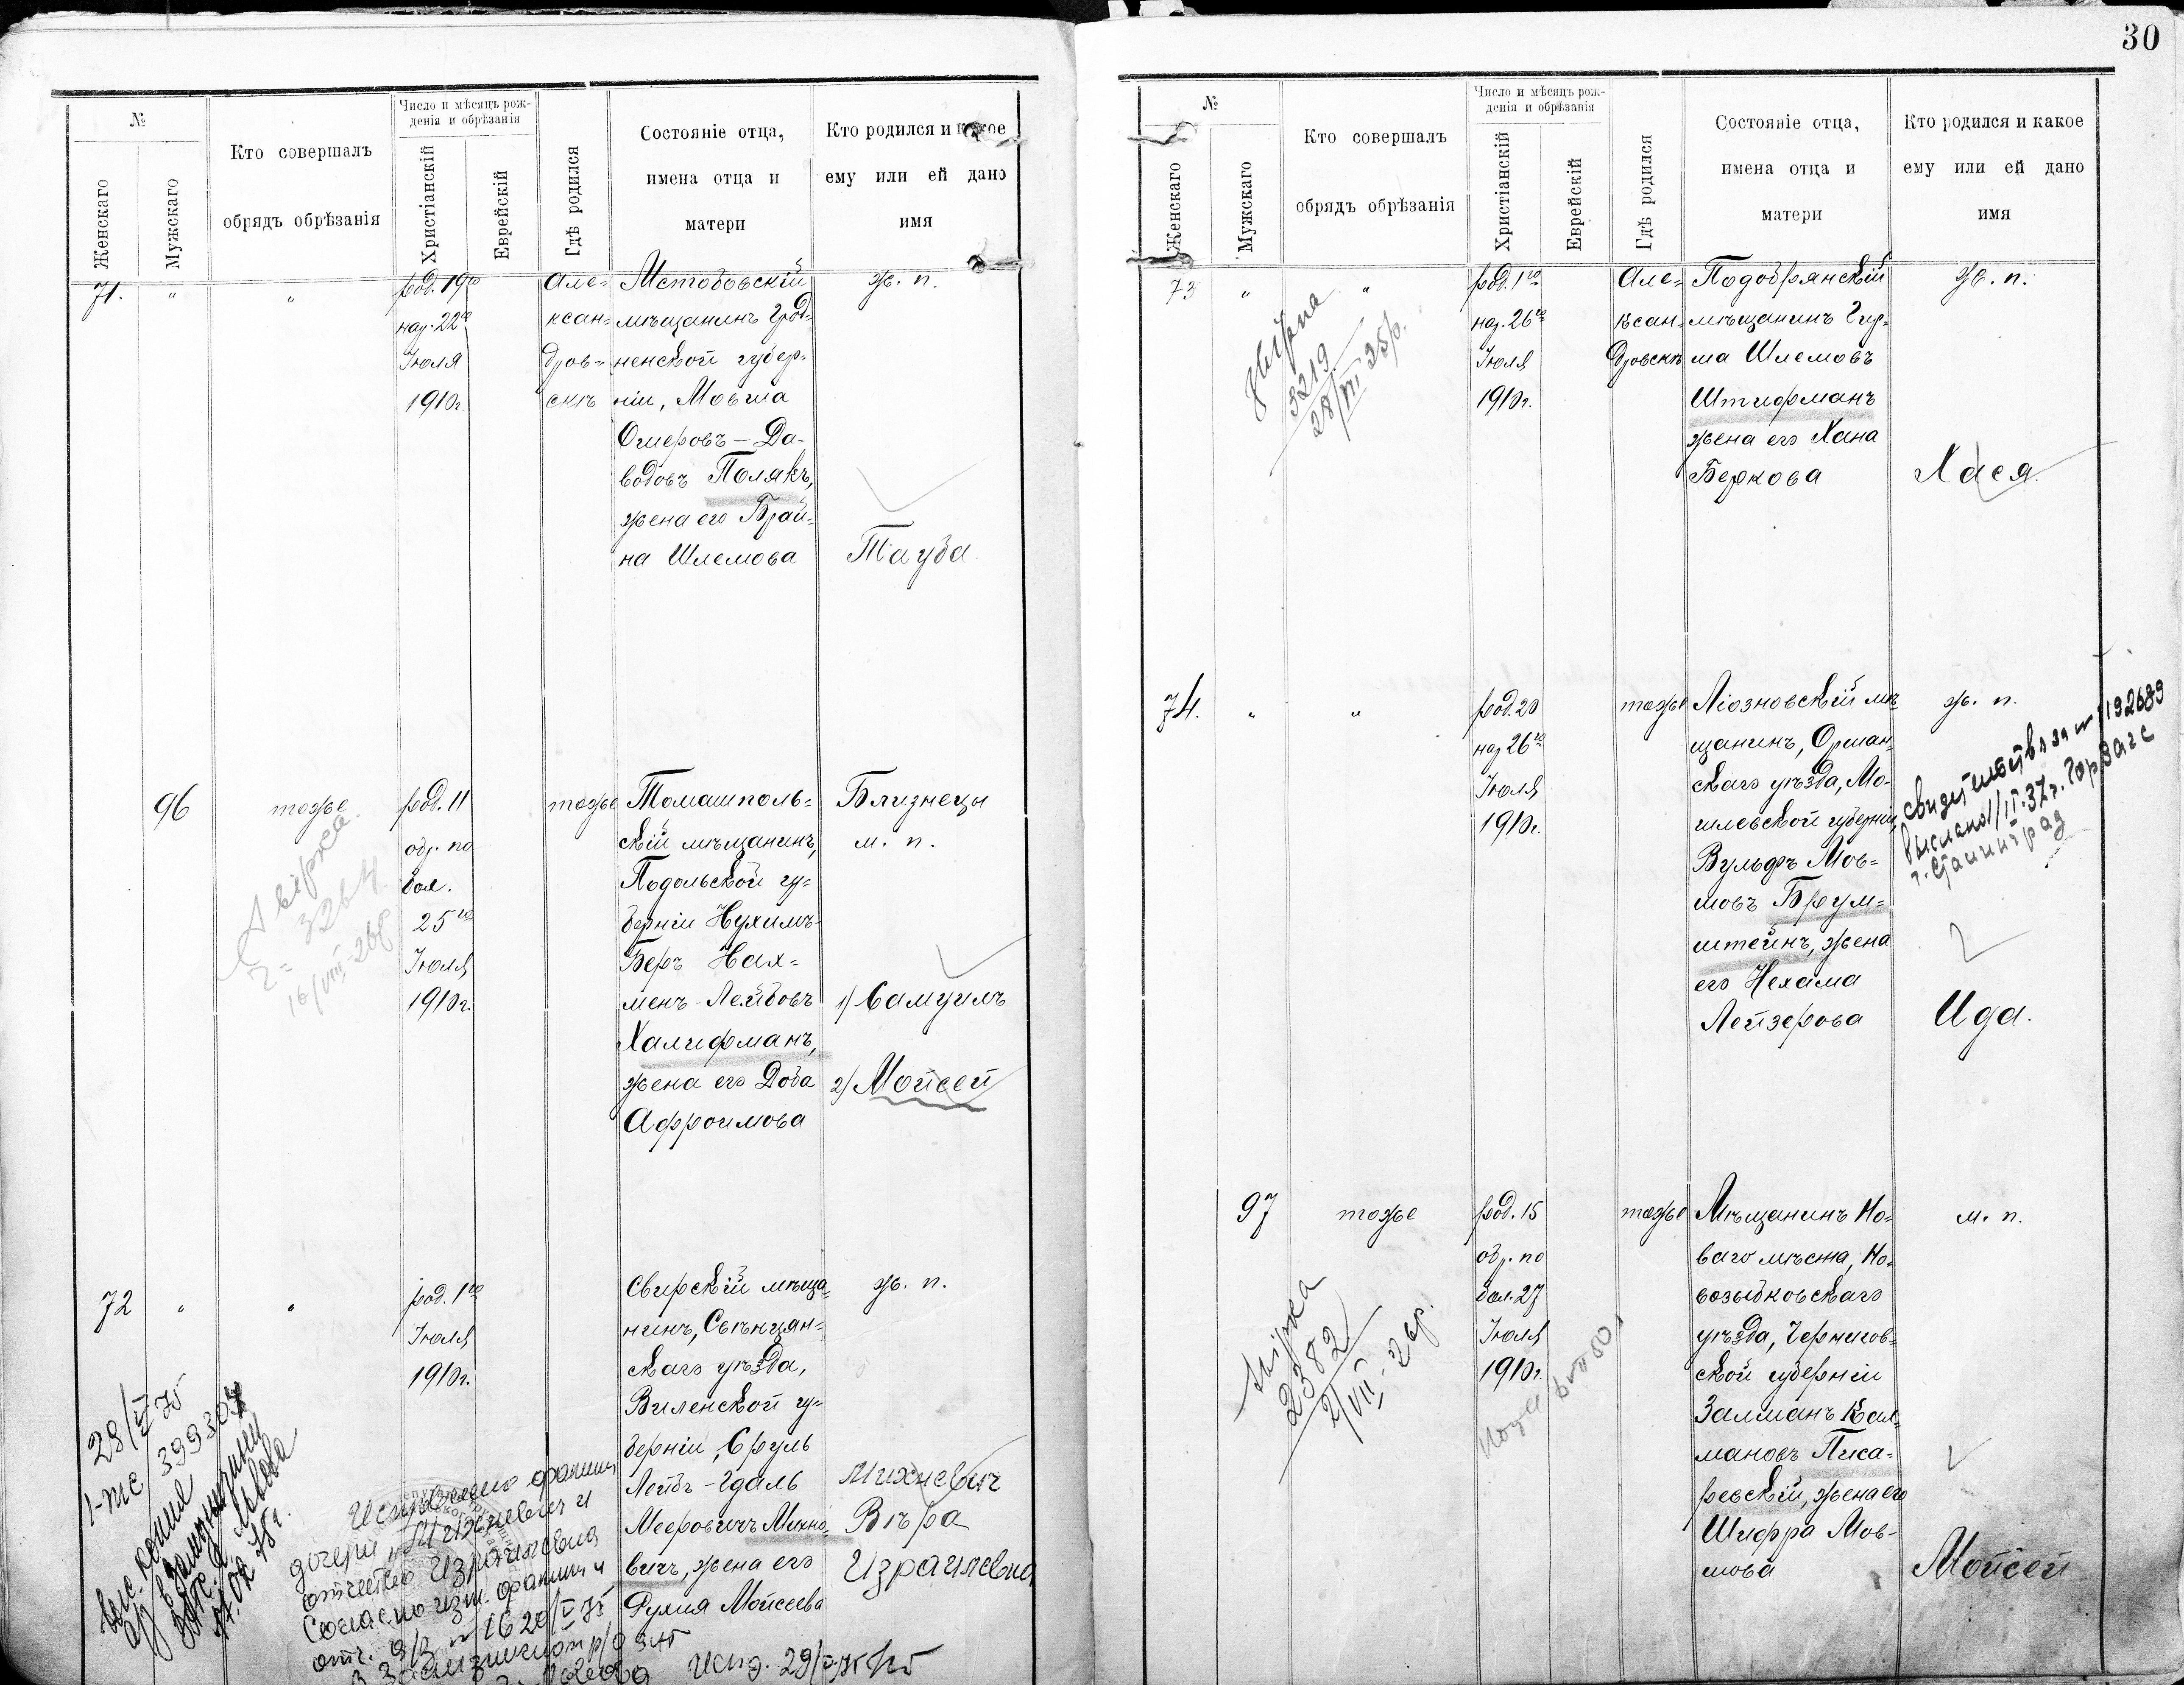 30
№
Женскаго
Мужскаго
Кто совершалъ
обрядъ обрѣзанія
Число и мѣсяцъ рож-
денія и обрѣзанія
Христіанскій
Еврейскій
Гдѣ родился
Состояніе отца,
имена отца и
матери
Кто родился и какое
ему или ей дано
имя
71.
"
"
род. 19го
нар. 22го
Іюля
1910г.
Але-
ксан-
дров-
скѣ
Мстобовскій
мѣщанинъ Грод-
ненской губер-
ніи, Мовша
Ошеровъ-Да-
водовъ Полякъ,
жена его Брай-
на Шлемова
ж. п.
Тауба
96
тоже
род. 11
обр. по
бол.
25го
Іюля
1910г.
тоже
Томашполь-
скій мѣщанинъ,
Подольской гу-
берніи Нухимъ-
Беръ Нах-
менъ-Лейбовъ
Халифманъ,
жена его Доба
Афроимова
Близнецы
м. п.
1) Самуилъ
2) Мойсей
звірка
3264
16/VIII-26р
72
"
"
род. 1го
Іюля
1910г.
Свирскій мѣща-
нинъ, Свѣнцян-
скаго уѣзда,
Виленской гу-
берніи, Сруль
Лейбъ-Гдаль
Мееровичъ Михно-
вичъ, жена его
Рухля Мойсеева
ж. п.
Михневич
Вѣра
Израилевна
28/V 75
399304
копия
Исправлено фамил
дочери "Михневич и
отчество Израилевна
Согласно изм. фамили и
отч. а/з № 1620/V 75
Испр. 29/V-75
№
Женскаго
Мужскаго
Кто совершалъ
обрядъ обрѣзанія
Число и мѣсяцъ рож-
денія и обрѣзанія
Христіанскій
Еврейскій
Гдѣ родился
Состояніе отца,
имена отца и
матери
Кто родился и какое
ему или ей дано
имя
73
"
"
род. 1го
нар. 26го
Іюля
1910г.
Але-
ксан-
дровскѣ
Подобрянскій
мѣщанинъ Гир-
ша Шлемовъ
Штифманъ
жена его Хана
Беркова
ж. п.
Хася.
звірка
3219
28/VII 25р.
74.
"
"
род. 20
нар 26го
Іюля
1910г.
тоже
Ліозновскій мѣ-
щанинъ, Оршан-
скаго уѣзда, Мо-
гилевской губерніи,
Вульфъ Мов-
шовъ Брум-
штейнъ, жена
его Нехама
Лейзерова
ж. п.
Ида.
свидетельство за № 192689
выслано 1/IV.37г. Гор Загс
г. Сталинград
97
тоже
род. 15
обр. по
бол. 27
Іюля
1910г.
тоже
Мѣщанинъ Но-
ваго мѣста, Но-
возыбковскаго
уѣзда, Чернигов-
ской губерніи
Залманъ Кал-
мановъ Писа-
ревскій, жена его
Шифра Мов-
шова
м. п.
Мойсей
звірка
2382
2/VII-26р.